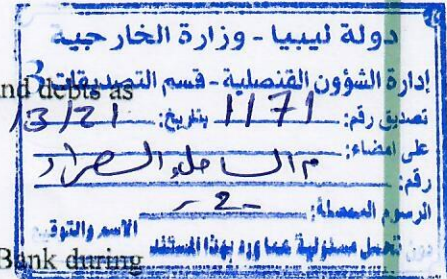 دولة ليبيا - وزارة الخارجية
إدارة الشؤون القنصلية - قسم التصديقات
and debts as
تصديق رقم: 1171 بتاريخ: 13/21
على امضاء:
رقم:
الرسوم المحصلة: -2-
الاسم والتوقيع
دون تحمل مسئولية عما ورد بهذا المستند
Bank during